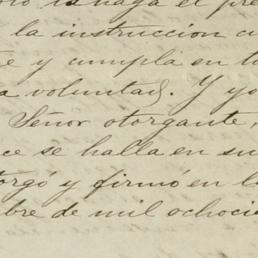 lo haga el pre
la instruccion a
e y cumpla en t
a voluntad. Y yo
Señor otorgante,
ce se halla en su
torgó y firmó en la
bre de mil ochocie